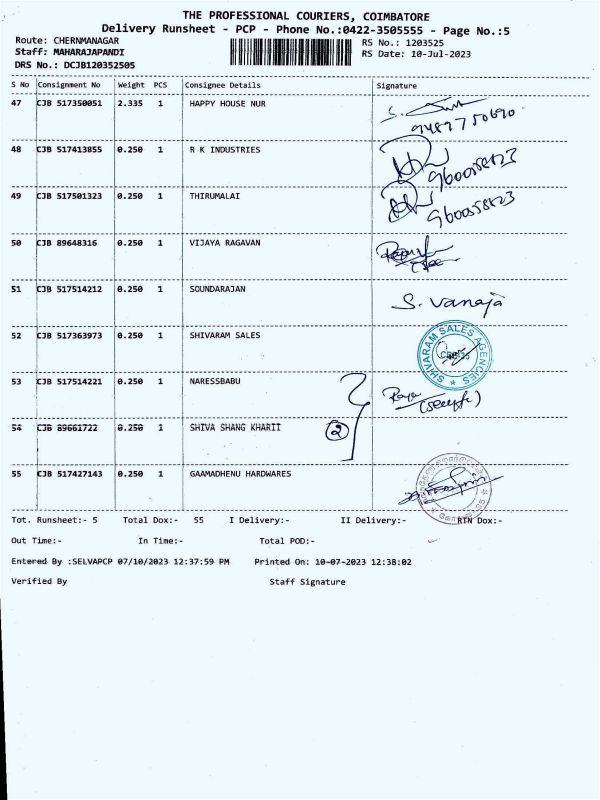 THE PROFESSIONAL COURIERS, COIMBATORE
Delivery Runsheet - PCP - Phone No.:0422-3505555 - Page No.:5
Route: CHERNMANAGAR
RS No.: 1203525
Staff: MAHARAJAPANDI
RS Date: 10-Jul-2023
DRS No.: DCJB120352505
S No Consignment No Weight PCS Consignee Details Signature
47 CJB 517350051 2.335 1 HAPPY HOUSE NUR
9489750690
48 CJB 517413855 0.250 1 R K INDUSTRIES
49 CJB 517501323 0.250 1 THIRUMALAI
50 CJB 89648316 0.250 1 VIJAYA RAGAVAN
51 CJB 517514212 0.250 1 SOUNDARAJAN S. Vanaja
52 CJB 517363973 0.250 1 SHIVARAM SALES SHIVARAM SALES AGENCIES
53 CJB 517514221 0.250 1 NARESSBABU
54 CJB 89661722 0.250 1 SHIVA SHANG KHARII 2
55 CJB 517427143 0.250 1 GAAMADHENU HARDWARES
Tot. Runsheet:- 5 Total Dox:- 55 I Delivery:- II Delivery:- RTN Dox:-
Out Time:- In Time:- Total POD:-
Entered By :SELVAPCP 07/10/2023 12:37:59 PM Printed On: 10-07-2023 12:38:02
Verified By Staff Signature